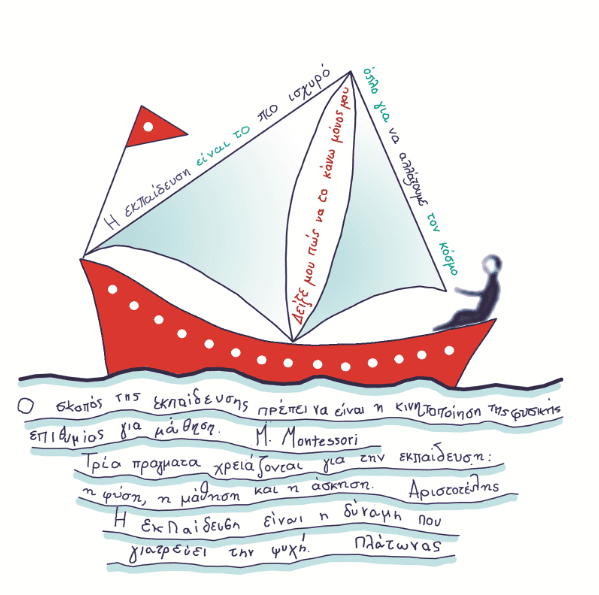 Η εκπαίδευση είναι το πιο ισχυρό
όπλο για να αλλάξουμε τον κόσμο
Δείξε μου πώς να το κάνω μόνος μου
Ο σκοπός της εκπαίδευσης πρέπει να είναι η κινητοποίηση της φυσικής
επιθυμίας για μάθηση. M. Montessori
Τρία πραγματα χρειάζονται για την εκπαίδευση:
η φύση, η μάθηση και η άσκηση. Αριστοτέλης
Η εκπαίδευση είναι η δύναμη που
γιατρεύει την ψυχή. Πλάτωνας